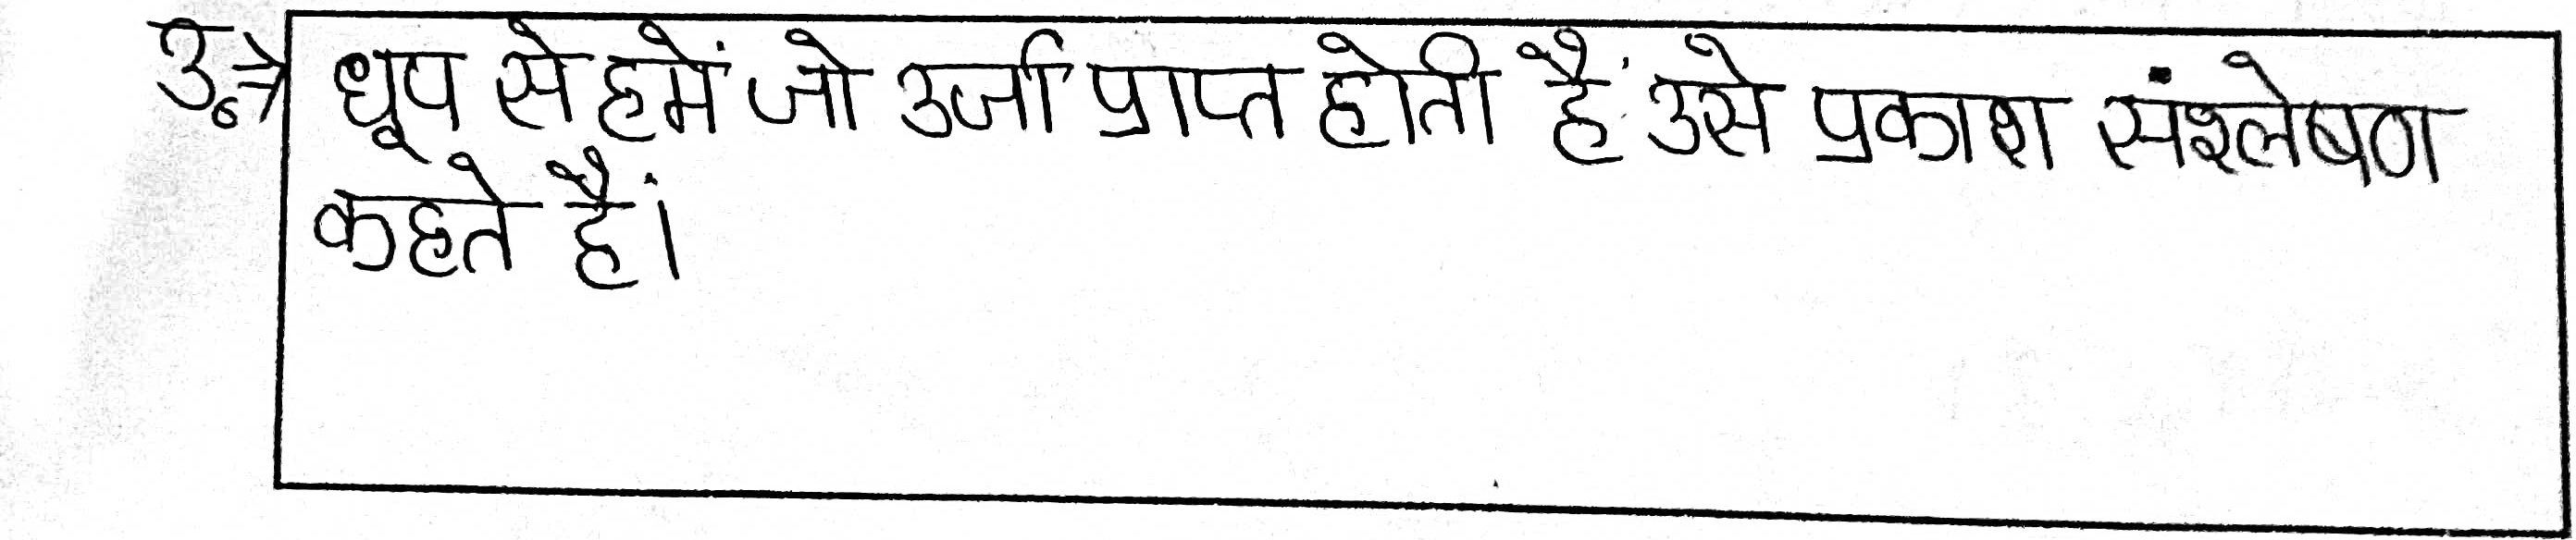 उ.→ धूप से हमें जो उर्जा प्राप्त होती हैं उसे प्रकाश संश्लेषण
कहते हैं।